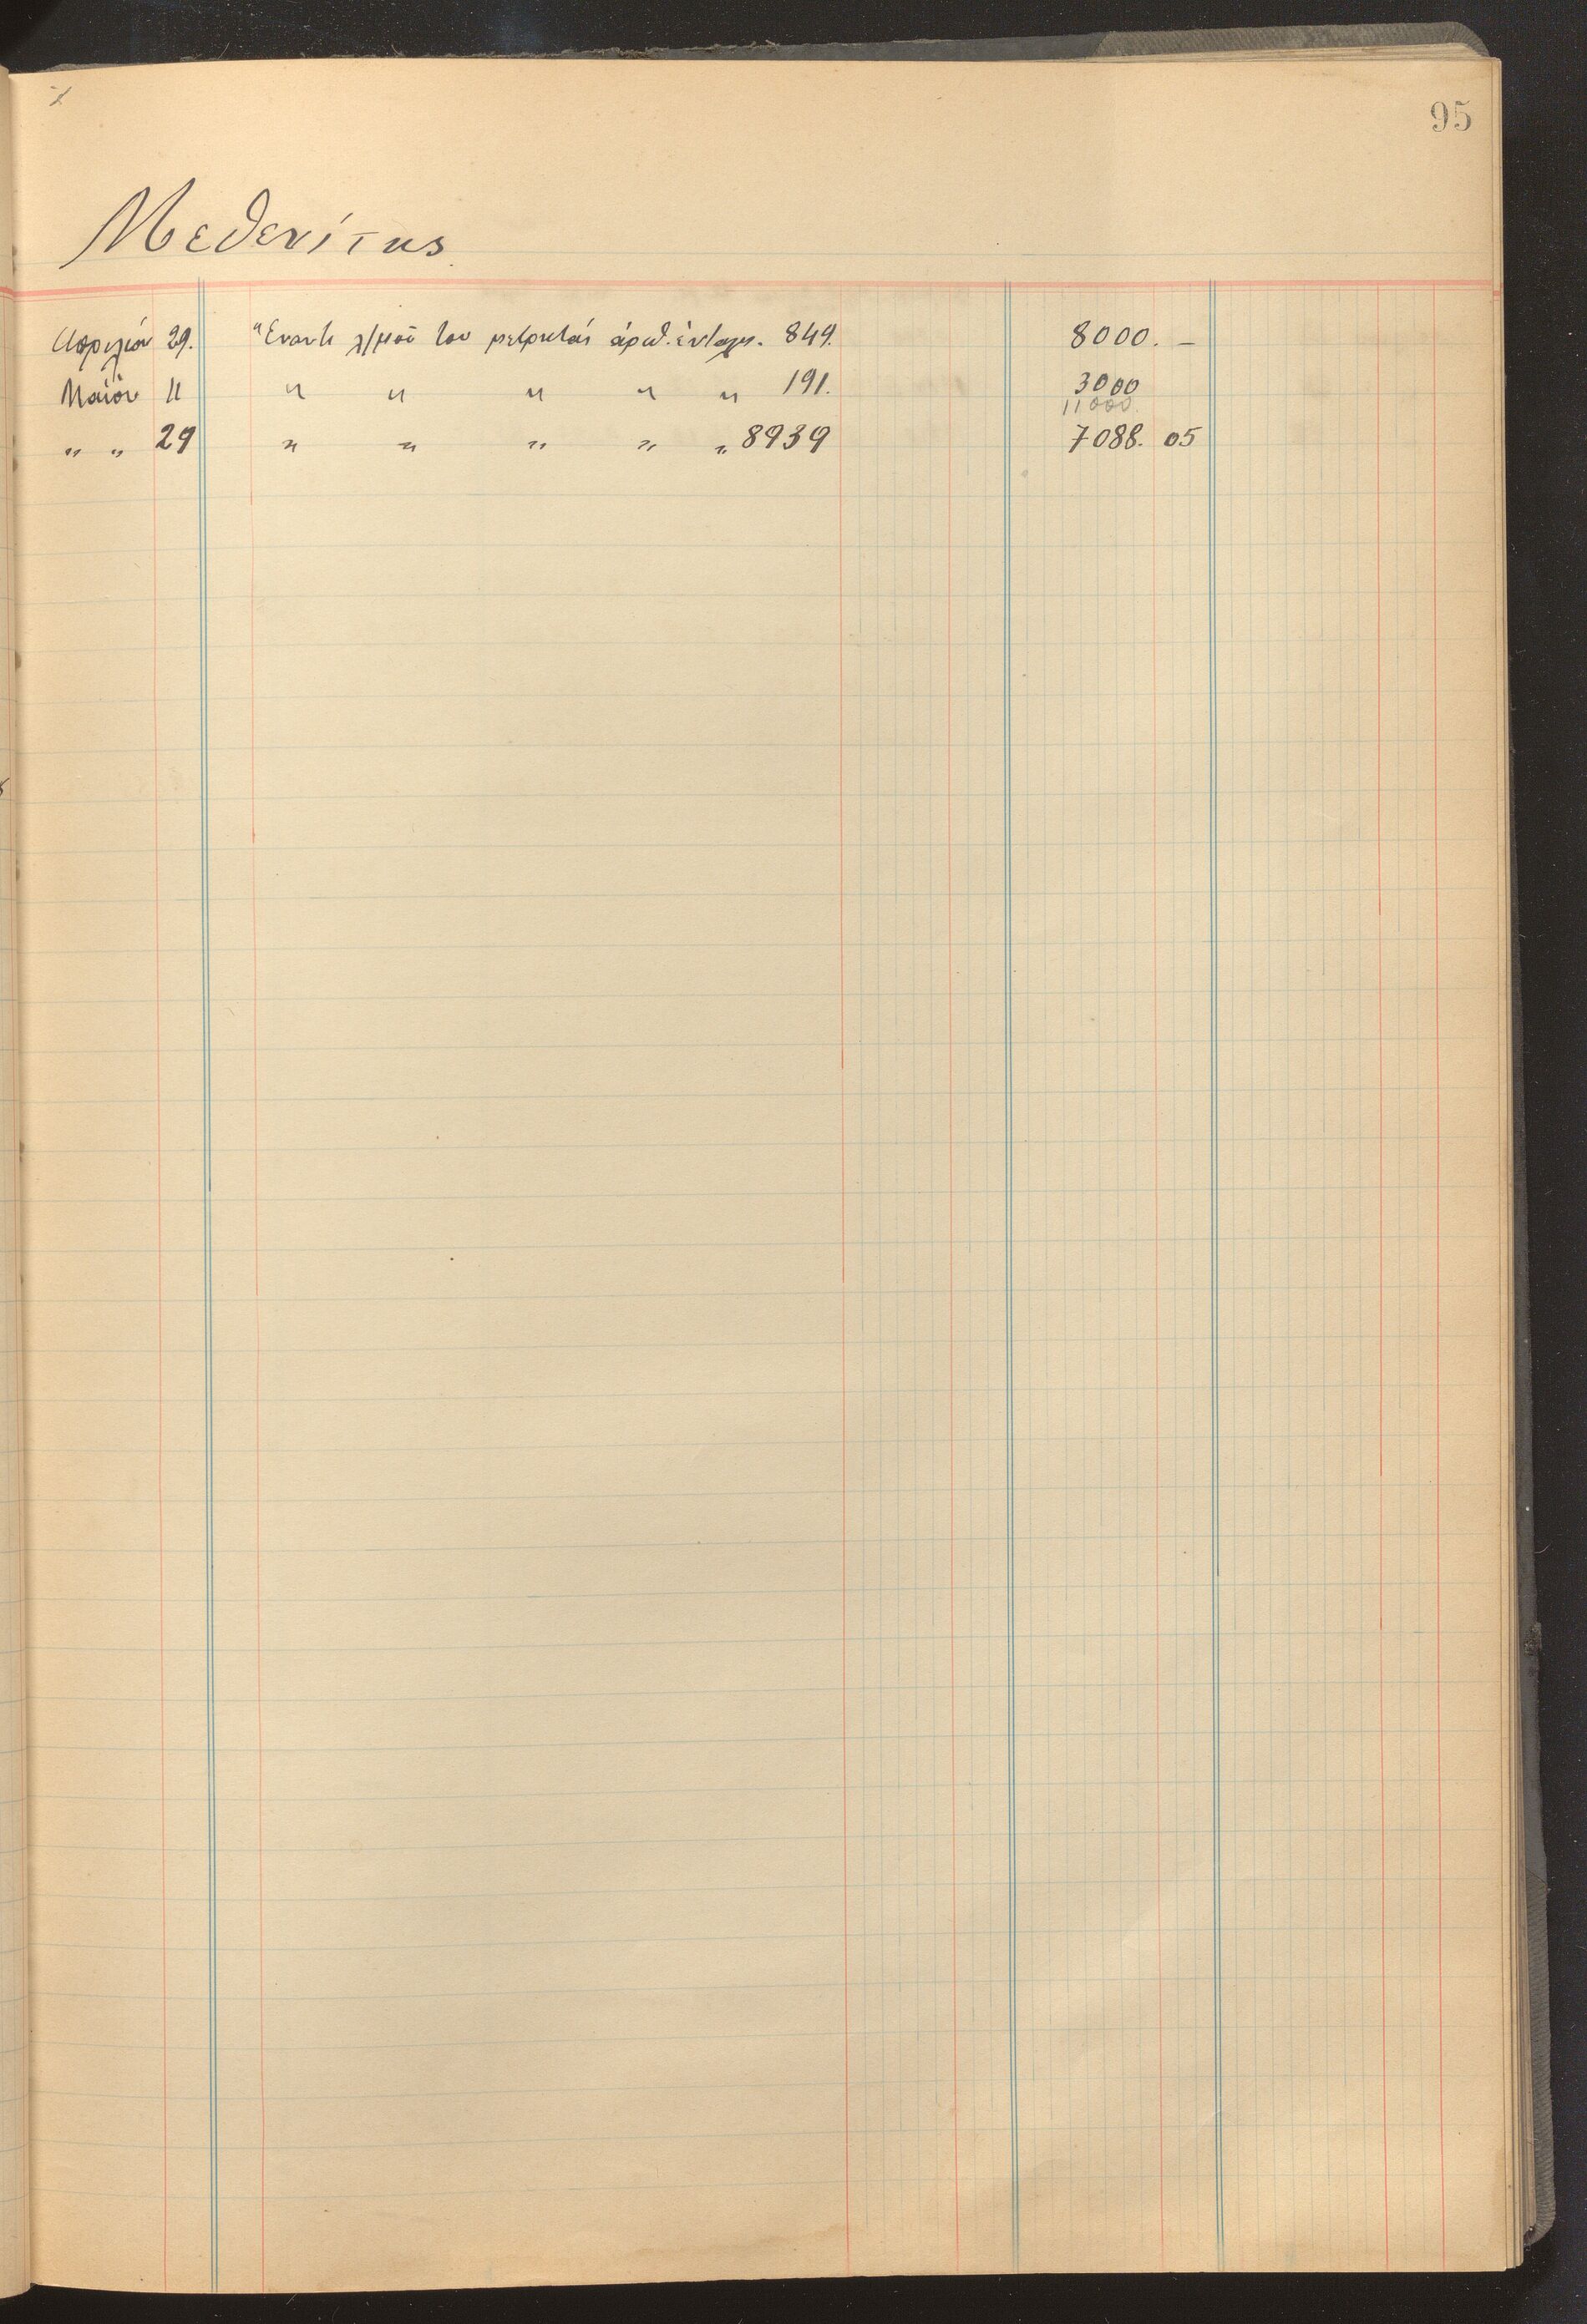 95
Μεθενίτης
Απριλίου 29. Ἔναντι λ/μοῦ του μετρητάς ἀριθ. ἐντάλμ. 849. 8000. —
Μαΐου 11 " " " " " 191. 3000
11000.
" " 29 " " " " " 8939 7088. 05